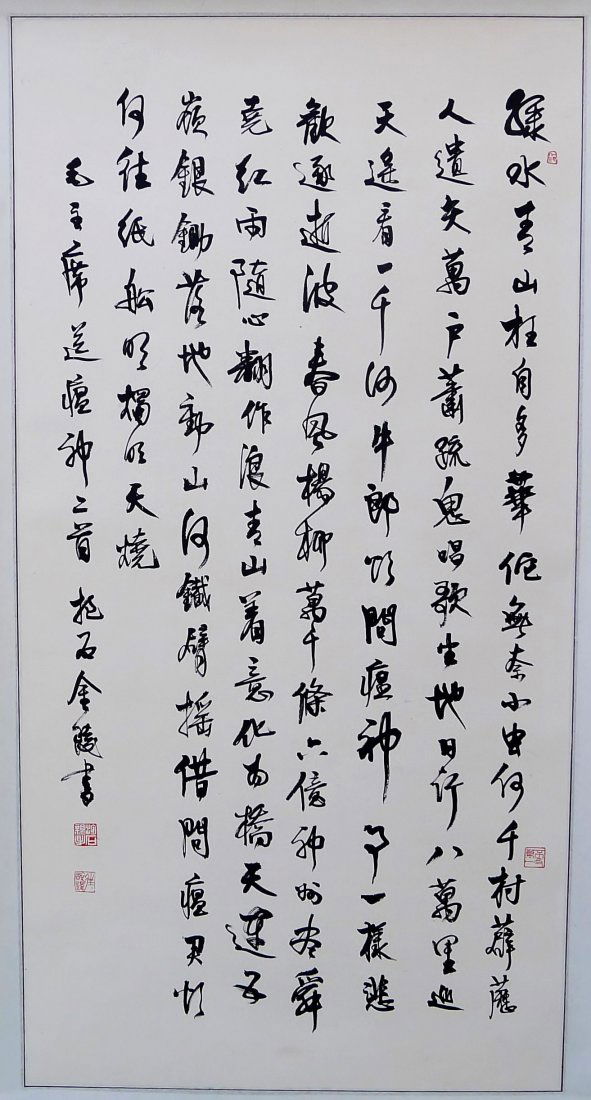 綠水青山枉自多華佗無奈小虫何千村薜荔
人遺矢萬戶蕭疏鬼唱歌坐地日行八萬里巡
天遙看一千河牛郎欲問瘟神事一樣悲
歡逐逝波春風楊柳萬千條六億神州盡舜
堯紅雨隨心翻作浪青山着意化為橋天連五
嶺銀鋤落地動山河鐵臂搖借問瘟君欲
何往紙船明燭照天燒
毛主席送瘟神二首抱石金陵書